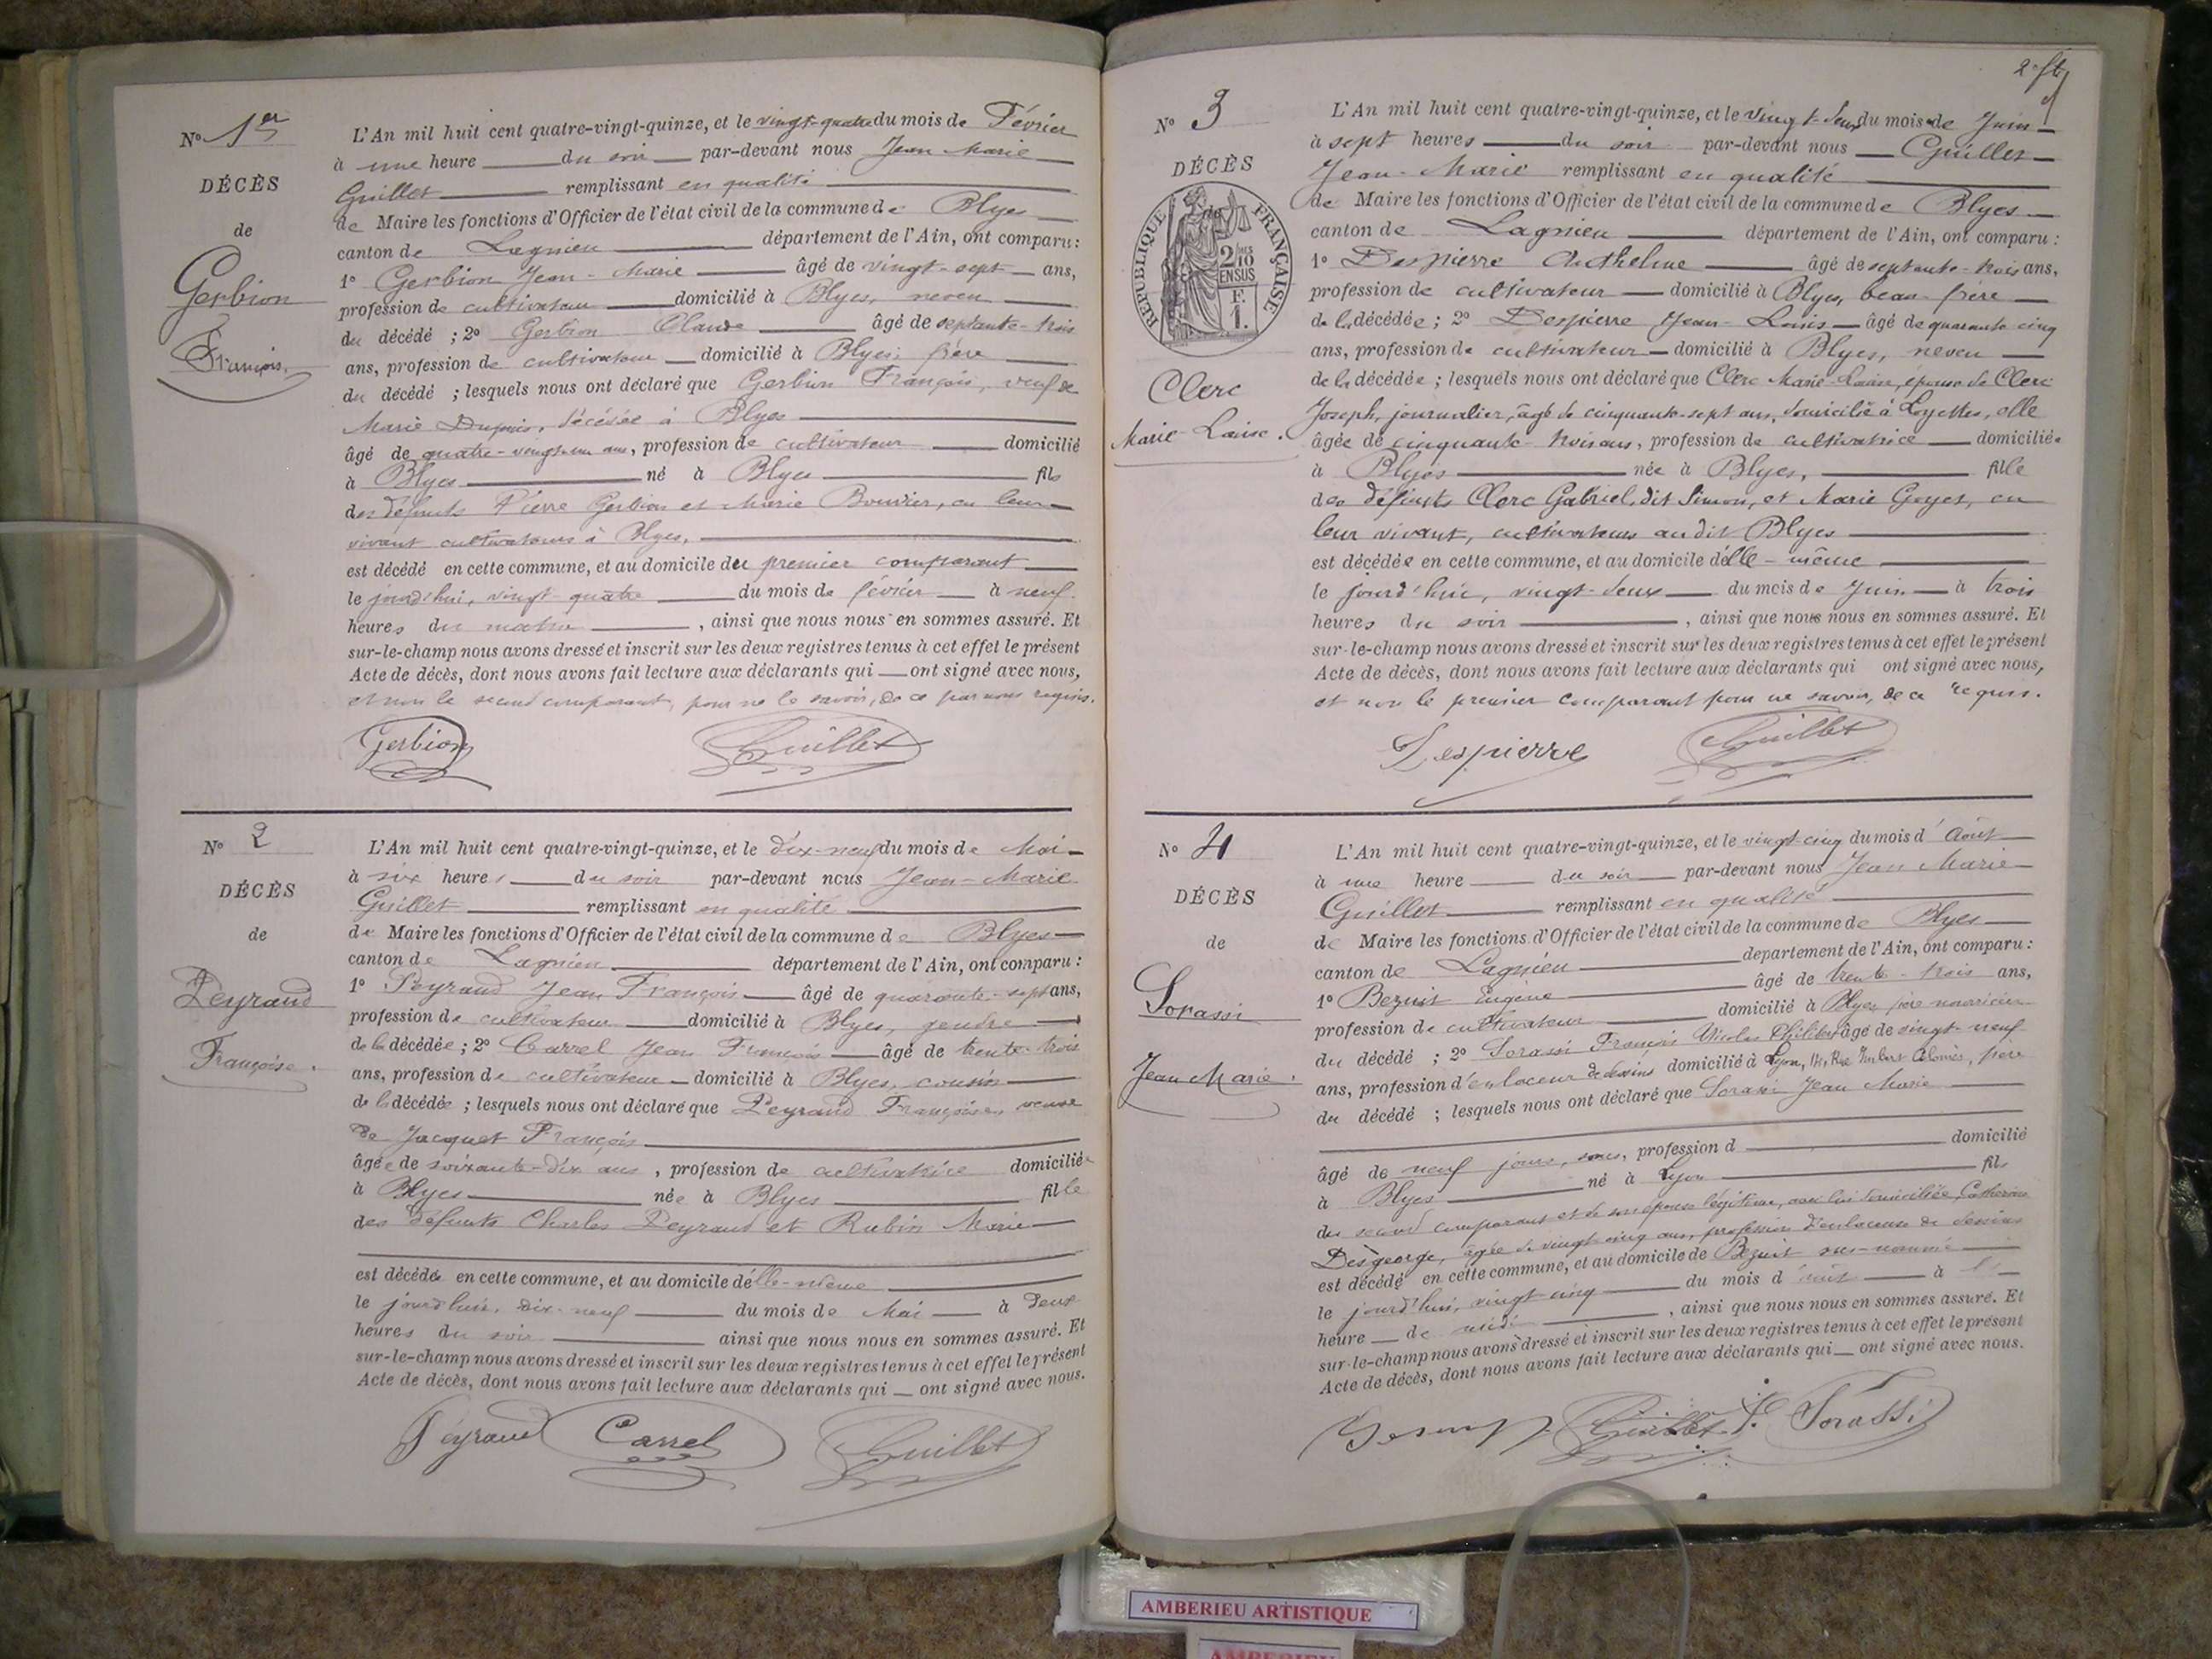 No 1er
DÉCÈS
de
Gerbion
François.
L'An mil huit cent quatre-vingt-quinze, et le vingt-quatre du mois de Février
à une heure du soir par-devant nous Jean Marie
Guillet remplissant en qualité
de Maire les fonctions d'Officier de l'état civil de la commune de Blyes
canton de Lagnieu département de l'Ain, ont comparu :
1° Gerbion Jean-Marie âgé de vingt-sept ans,
profession de cultivateur domicilié à Blyes, neveu
du décédé ; 2° Gerbion Claude âgé de septante-trois
ans, profession de cultivateur domicilié à Blyes, frère
du décédé ; lesquels nous ont déclaré que Gerbion François, veuf de
Marie Dupuis, décédée à Blyes
âgé de quatre-vingt-un ans, profession de cultivateur domicilié
à Blyes né à Blyes fils
des défunts Pierre Gerbion et Marie Bouvier, en leur
vivant cultivateurs à Blyes,
est décédé en cette commune, et au domicile du premier comparant
le jourd'hui, vingt-quatre du mois de février à neuf
heures du matin, ainsi que nous nous en sommes assuré. Et
sur-le-champ nous avons dressé et inscrit sur les deux registres tenus à cet effet le présent
Acte de décès, dont nous avons fait lecture aux déclarants qui ont signé avec nous,
et non le second comparant, pour ne le savoir, de ce par nous requis.
Gerbion Guillet
No 2
DÉCÈS
de
Peyraud
Françoise.
L'An mil huit cent quatre-vingt-quinze, et le dix-neuf du mois de Mai
à six heures du soir par-devant nous Jean-Marie
Guillet remplissant en qualité
de Maire les fonctions d'Officier de l'état civil de la commune de Blyes
canton de Lagnieu département de l'Ain, ont comparu :
1° Peyraud Jean François âgé de quarante-sept ans,
profession de cultivateur domicilié à Blyes, gendre
de la décédée ; 2° Carrel Jean François âgé de trente-trois
ans, profession de cultivateur domicilié à Blyes, cousin
de la décédée ; lesquels nous ont déclaré que Peyraud Françoise, veuve
de Jacquet François
âgée de soixante-dix ans, profession de cultivatrice domiciliée
à Blyes née à Blyes fille
des défunts Charles Peyraud et Rubin Marie
est décédée en cette commune, et au domicile d'elle-même
le jourd'hui, dix-neuf du mois de Mai à deux
heures du soir ainsi que nous nous en sommes assuré. Et
sur-le-champ nous avons dressé et inscrit sur les deux registres tenus à cet effet le présent
Acte de décès, dont nous avons fait lecture aux déclarants qui ont signé avec nous.
Peyraud Carrel Guillet
No 3
DÉCÈS
RÉPUBLIQUE FRANÇAISE
2/10
EN SUS
F.
1.
Clerc
Marie-Louise.
L'An mil huit cent quatre-vingt-quinze, et le vingt-deux du mois de Juin
à sept heures du soir par-devant nous Guillet
Jean-Marie remplissant en qualité
de Maire les fonctions d'Officier de l'état civil de la commune de Blyes
canton de Lagnieu département de l'Ain, ont comparu :
1° Despierre Anthelme âgé de septante-trois ans,
profession de cultivateur domicilié à Blyes, beau-frère
de la décédée ; 2° Despierre Jean-Louis âgé de quarante cinq
ans, profession de cultivateur domicilié à Blyes, neveu
de la décédée ; lesquels nous ont déclaré que Clerc Marie-Louise, épouse de Clerc
Joseph, journalier, âgé de cinquante-sept ans, domicilié à Loyettes, elle
âgée de cinquante-trois ans, profession de cultivatrice domiciliée
à Blyes née à Blyes, fille
des défunts Clerc Gabriel, dit Simon, et Marie Goyet, en
leur vivant, cultivateurs au dit Blyes
est décédée en cette commune, et au domicile d'elle-même
le jourd'hui, vingt-deux du mois de Juin à trois
heures du soir, ainsi que nous nous en sommes assuré. Et
sur-le-champ nous avons dressé et inscrit sur les deux registres tenus à cet effet le présent
Acte de décès, dont nous avons fait lecture aux déclarants qui ont signé avec nous,
et non le premier comparant pour ne savoir, de ce requis.
Despierre Guillet
No 4
DÉCÈS
de
Sorassi
Jean Marie.
L'An mil huit cent quatre-vingt-quinze, et le vingt-cinq du mois d'Août
à une heure du soir par-devant nous Jean Marie
Guillet remplissant en qualité
de Maire les fonctions d'Officier de l'état civil de la commune de Blyes
canton de Lagnieu département de l'Ain, ont comparu :
1° Bezuit Eugène âgé de trente-trois ans,
profession de cultivateur domicilié à Blyes père nourricier
du décédé ; 2° Sorassi François Nicolas Philibert âgé de vingt-neuf
ans, profession d'enlaceur de dessins domicilié à Lyon, Rue Imbert Colomès, père
du décédé ; lesquels nous ont déclaré que Sorassi Jean Marie
âgé de neuf jours, profession d domicilié
à Blyes né à Lyon fils
du second comparant et de son épouse légitime, avec lui domiciliée, Catherine
Desgeorge, âgée de vingt-cinq ans, profession d'enlaceuse de dessins
est décédé en cette commune, et au domicile de Bezuit sus-nommé
le jourd'hui, vingt cinq du mois d'août à
heure de midi, ainsi que nous nous en sommes assuré. Et
sur-le-champ nous avons dressé et inscrit sur les deux registres tenus à cet effet le présent
Acte de décès, dont nous avons fait lecture aux déclarants qui ont signé avec nous.
Guillet Sorassi
AMBERIEU ARTISTIQUE
AMBERIEU